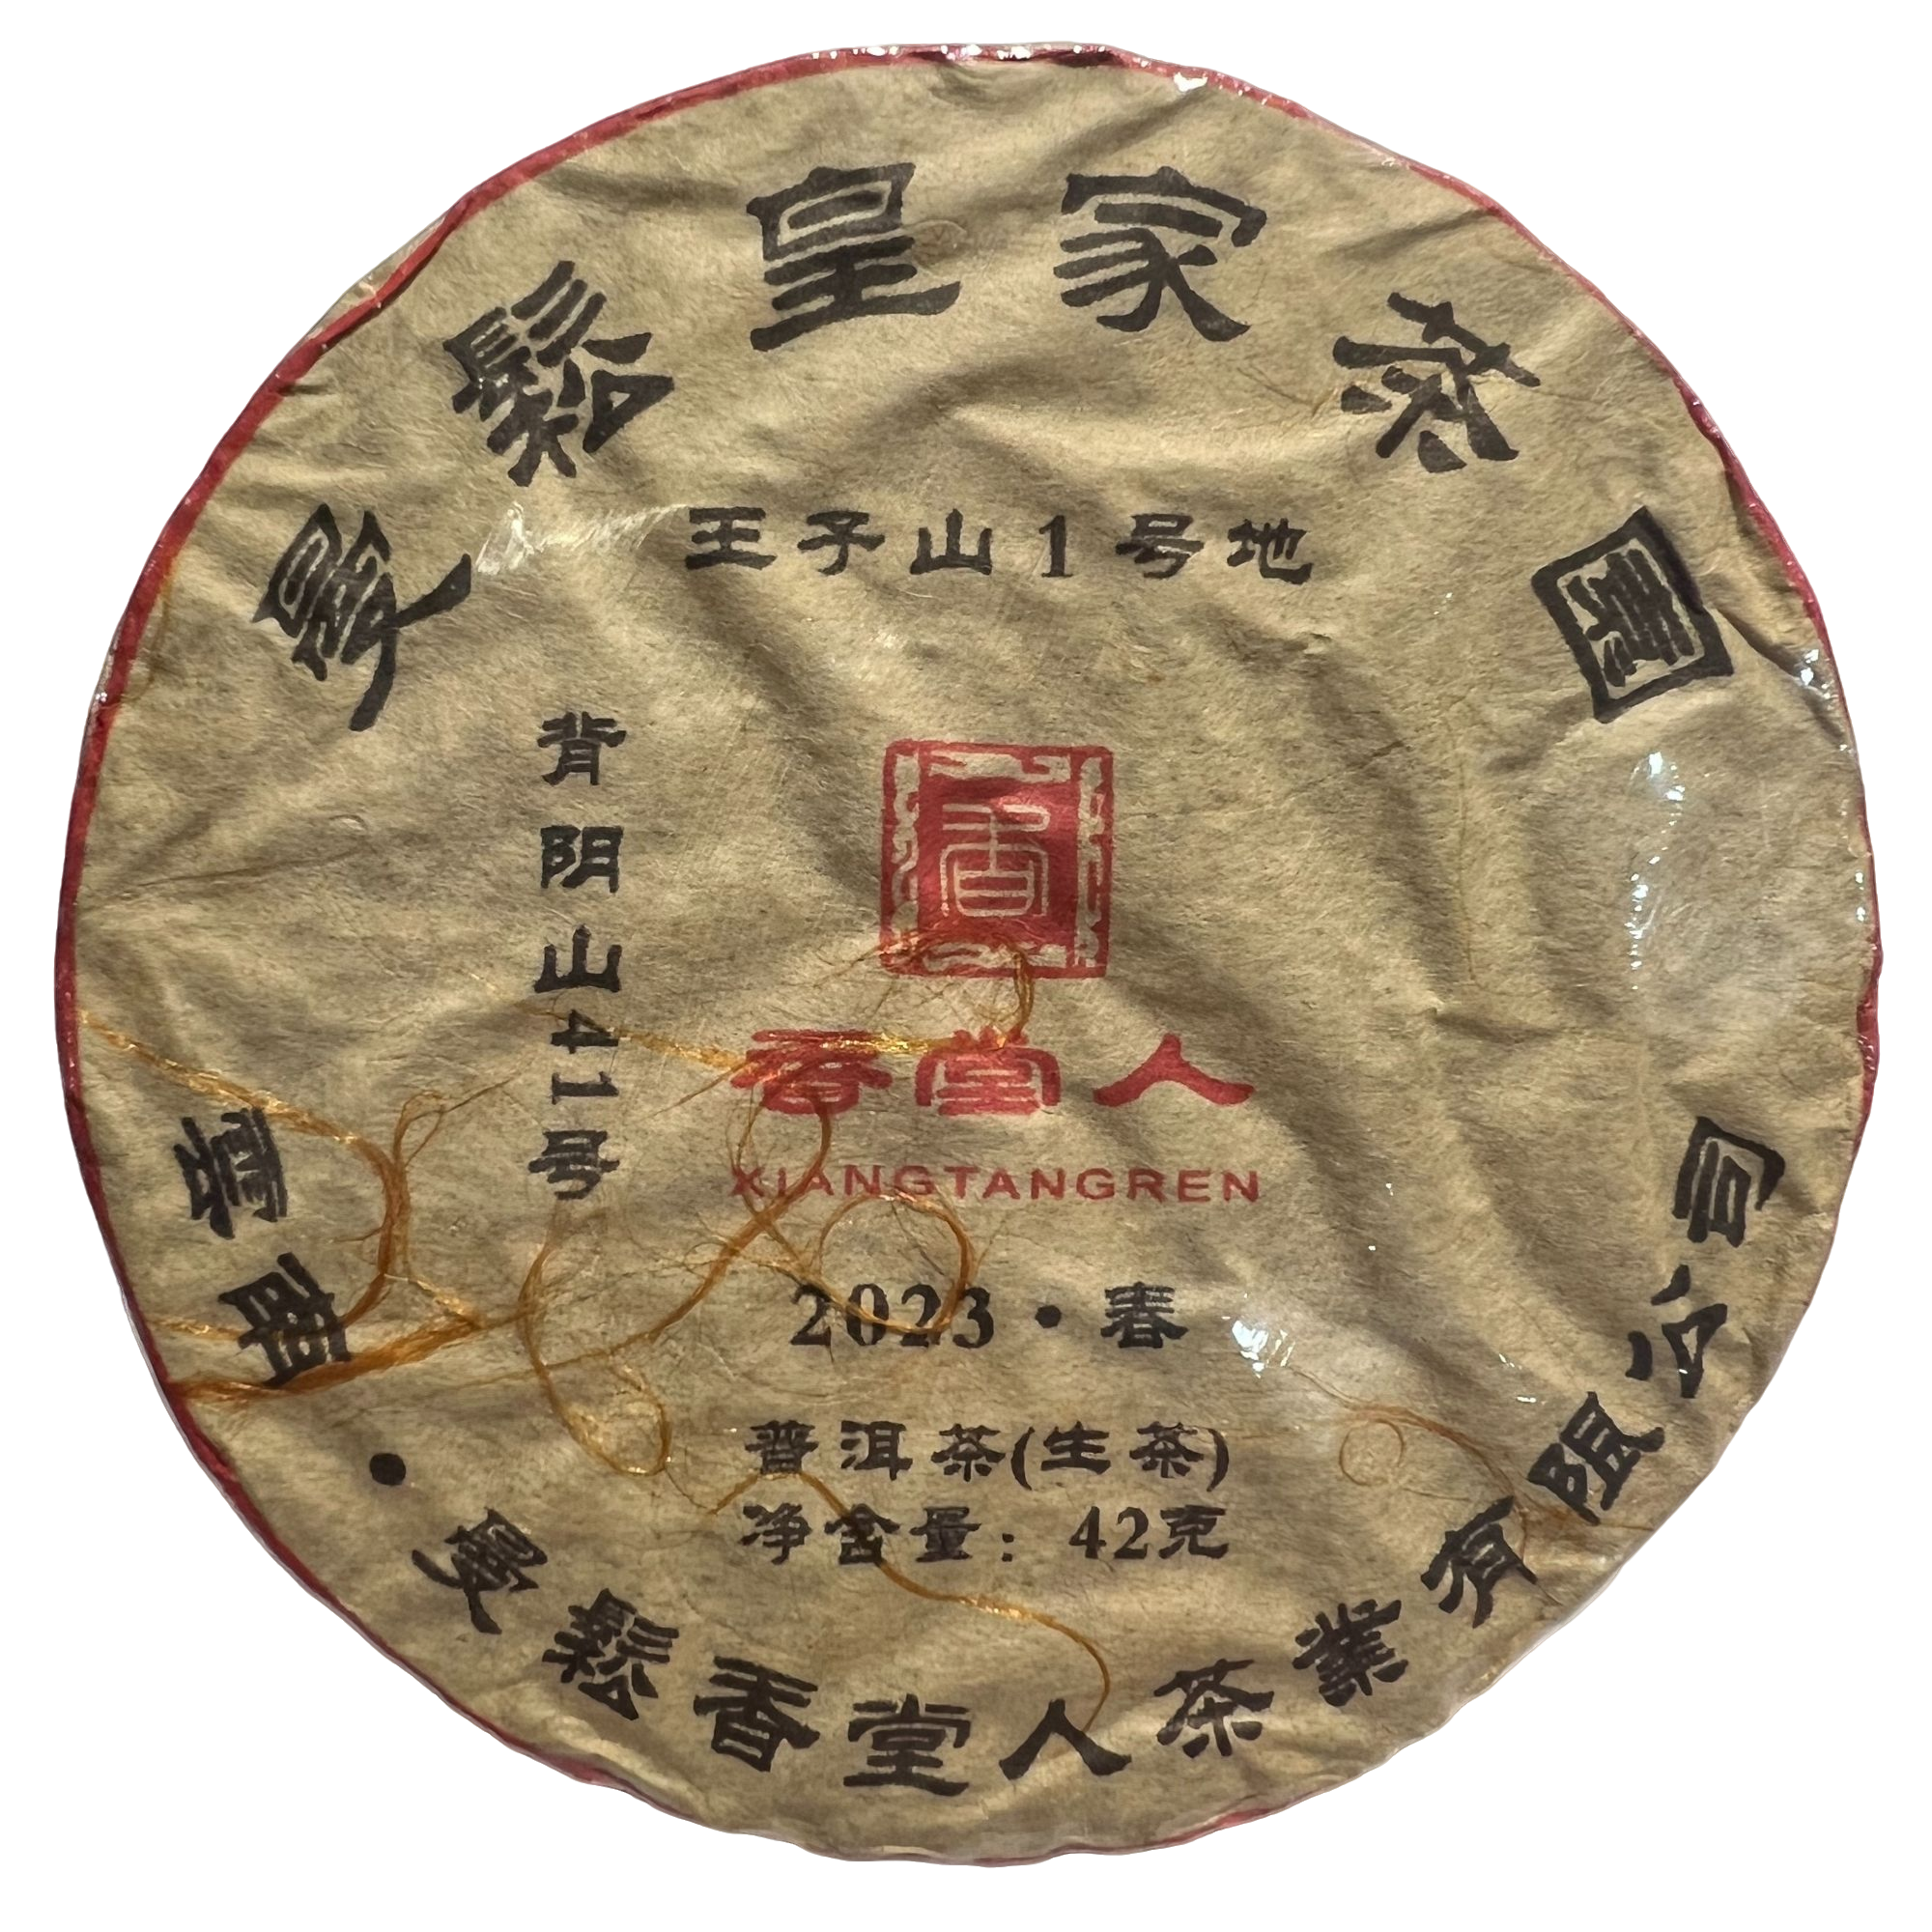 曼鬆皇家茶園
王子山1号地
背阴山41号
香
香堂人
XIANGTANGREN
2023·春
普洱茶(生茶)
净含量：42克
雲南·曼鬆香堂人茶業有限公司